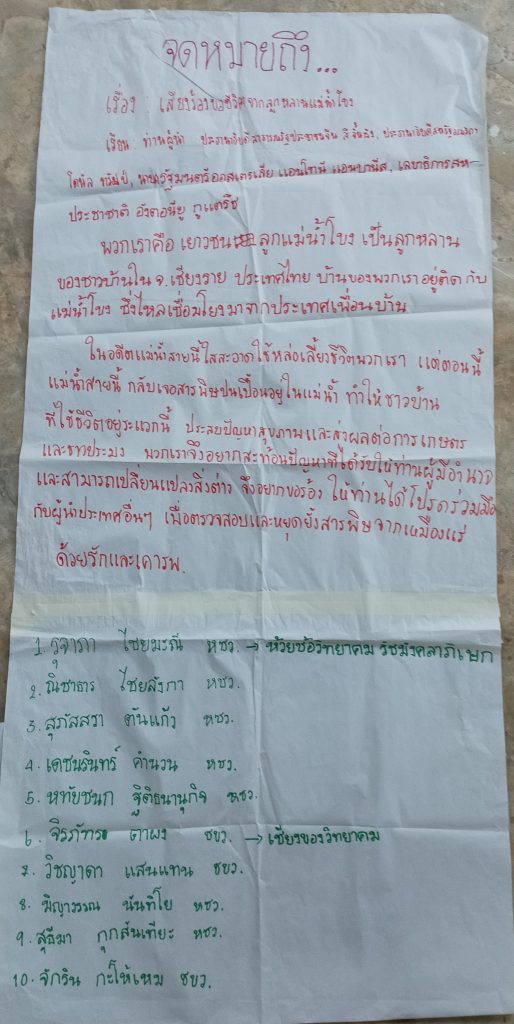 จดหมายถึง...
เรื่อง : เสียงร้องขอชีวิตจากลูกหลานแม่น้ำโขง
เรียน ท่านผู้นำ ประธานาธิบดีสาธารณรัฐประชาชนจีน สี จิ้นผิง, ประธานาธิบดีสหรัฐอเมริกา
โดนัล ทรัมป์, นายกรัฐมนตรีออสเตรเลีย แอนโทนี แอนบานีส, เลขาธิการสห-
ประชาชาติ อังตอนียู กูแตร์รีช
พวกเราคือ เยาวชน ลูกแม่น้ำโขง เป็นลูกหลาน
ของชาวบ้านใน จ.เชียงราย ประเทศไทย บ้านของพวกเราอยู่ติดกับ
แม่น้ำโขง ซึ่งไหลเชื่อมโยงมาจากประเทศเพื่อนบ้าน
ในอดีตแม่น้ำสายนี้ใสสะอาดใช้หล่อเลี้ยงชีวิตพวกเรา แต่ตอนนี้
แม่น้ำสายนี้ กลับเจอสารพิษปนเปื้อนอยู่ในแม่น้ำ ทำให้ชาวบ้าน
ที่ใช้ชีวิตอยู่ระแวกนี้ ประสบปัญหาสุขภาพและส่งผลต่อการเกษตร
และชาวประมง พวกเราจึงอยากสะท้อนปัญหาที่ได้รับให้ท่านผู้มีอำนาจ
และสามารถเปลี่ยนแปลงสิ่งต่าง จึงอยากขอร้อง ให้ท่านได้โปรดร่วมมือ
กับผู้นำประเทศอื่นๆ เพื่อตรวจสอบและหยุดยั้งสารพิษจากเหมืองแร่
ด้วยรักและเคารพ.
1. รุจาภา ไชยมะณี หชว. → ห้วยซ้อวิทยาคม รัชมังคลาภิเษก
2. ณิชาธาร ไชยลังกา หชว.
3. สุภัสสรา ตันแก้ว หชว.
4. เดชนรินทร์ คำนวน หชว.
5. หทัยชนก ฐิติธนานุกิจ หชว.
6. จิรภัทร ตาผง ชขว. → เชียงของวิทยาคม
7. วิชญาดา แสนแทน ชขว.
8. พิญาวรรณ นันทิโย หชว.
9. สุธีมา กุกสันเทียะ หชว.
10. จักริน กะให้เหม ชขว.